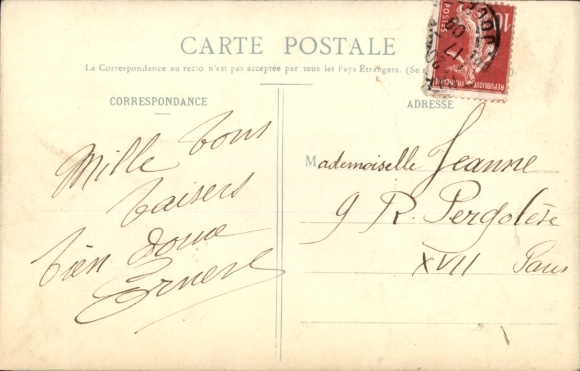 CARTE POSTALE
La Correspondance au recto n'est pas acceptée par tous les Pays Étrangers. (Se
CORRESPONDANCE
Mille bons
baisers
bien doux
Ernest
ADRESSE
Mademoiselle Jeanne
9 R. Pergolèse
XVII Paris
10
POSTES
REPUBLIQUE FRANÇAISE
17
09